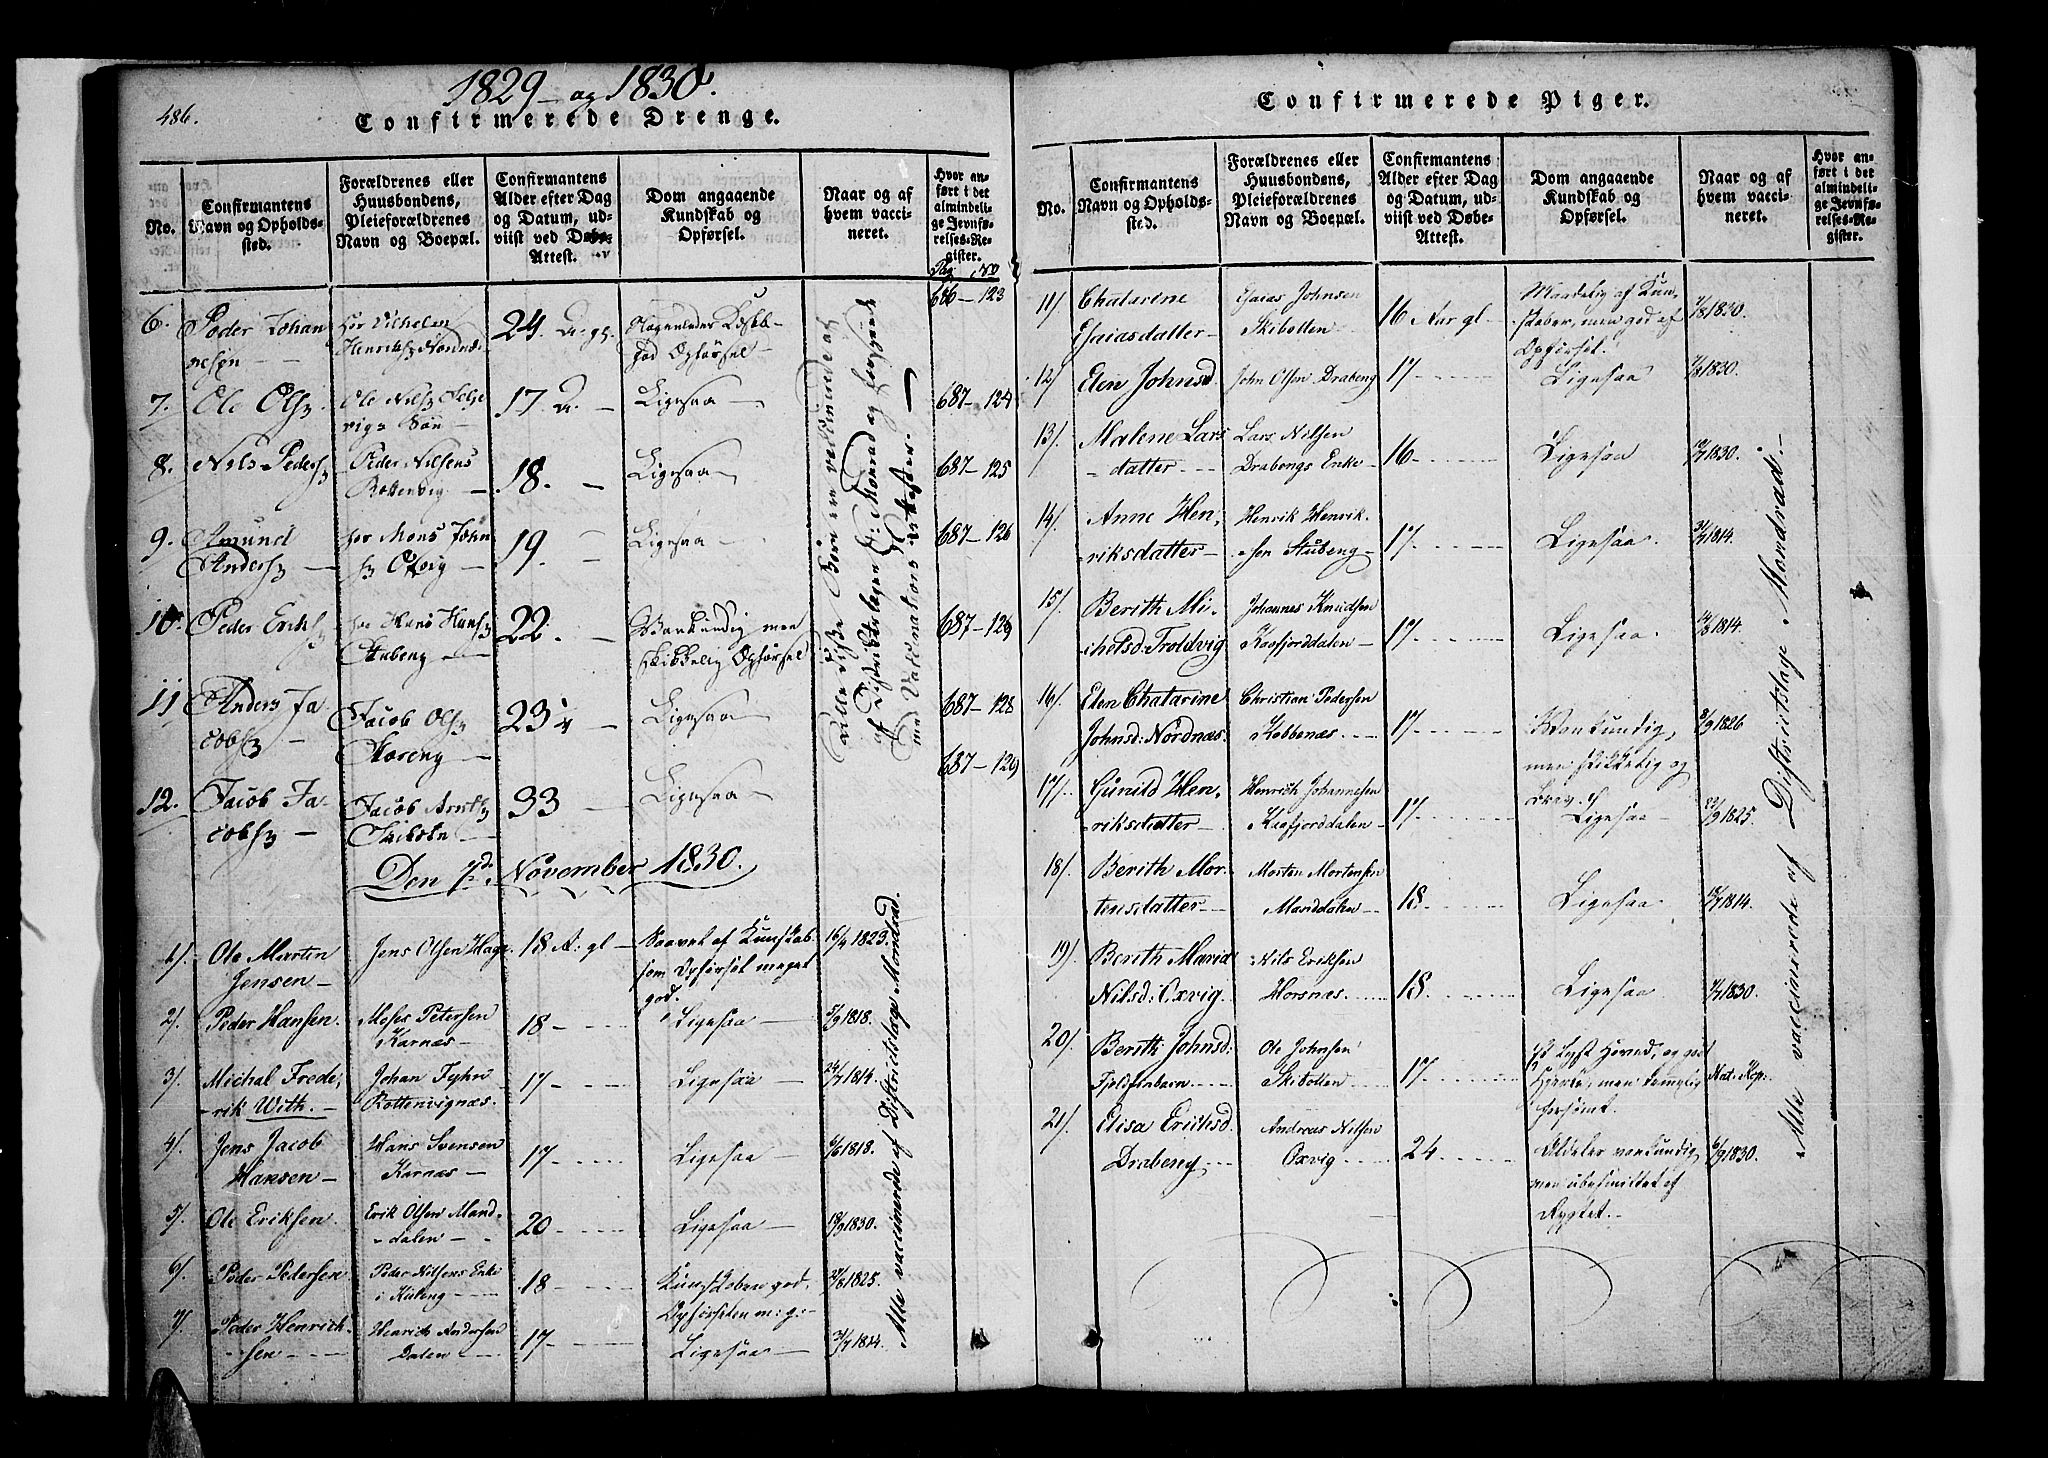 486.
1829 og 1830.
Confirmerede Drenge.
No.
Confirmantens Navn og Opholdssted.
Forældrenes eller Huusbondens, Pleieforældrenes Navn og Boepæl.
Confirmantens Alder efter Dag og Datum, udviist ved Døbe-Attest.
Dom angaaende Kundskab og Opførsel.
Naar og af hvem vaccineret.
Hvor anført i det almindelige Jevnførelses-Register.
Pag No
6. Peder Johannesen hos Vilhelm Henriks Nordnæs 24 A. gl. god Opførsel 686-123
7. Ole Ols Ole Nils Søn 17 A. Ligesaa 687-124
8. Nils Peders Peder Nilsens Rottenvig 18. Ligesaa 687-125
9. Amund Anders hos Mons John 19. Ligesaa 687-126
10. Peder Eriks hos Hans Hans Stubeng 22. Vankundig men skikkelig Opførsel 687-129
11 Anders Jacobs Jacob Ols Storeng 23 Ligesaa 687-128
12. Jacob Jacobs Jacob 33 Ligesaa 687-129
Den 7de November 1830.
1/. Ole Martin Jensen Jens Olsen Hage 18 A: gl Saavel af Kunskab som Opførsel meget god. 16/4 1823.
2/. Peder Hansen. Moses Petersen Karnæs 18 Ligesaa 5/9 1818.
3/. Michal Frederik With. Johan Fyhn Rottenvignæs. 17 Ligesaa 24/7 1814.
4/. Jens Jacob Hansen Hans Svensen Karnæs 17 Ligesaa 6/6 1818.
5/. Ole Eriksen. Erik Olsen Manddalen 20 Ligesaa 18/9 1830.
6/. Peder Pedersen Peder Nilsens Enke i Kileng 18 Kunskaben god, Opførselen m: g: 27/8 1825.
7/. Peder Henriksen Henrich Andersen Dalen 17 Ligesaa 31/7 1814.
Alle vaccinerede af Districtslæge Mondrad.
Confirmerede Piger.
No.
Confirmantens Navn og Opholdssted.
Forældrenes eller Huusbondens, Pleieforældrenes Navn og Boepæl.
Confirmantens Alder efter Dag og Datum, udviist ved Døbe-Attest.
Dom angaaende Kundskab og Opførsel.
Naar og af hvem vaccineret.
Hvor anført i det almindelige Jevnførelses-Register.
11/ Chatarine Esaiasdatter Esaias Johnsen Skibotten 16 Aar gl Maadelig af Kunskaber, men god af Opførsel. 7/8 1830.
12/ Elen Johnsd. John Olsen Drabeng 17 Ligesaa 7/8 1830.
13/. Malene Larsdatter Lars Nilsen Drabengs Enke 16 Ligesaa 10/7 1830.
14/. Anne Henriksdatter Henrik Henriksen Stubeng 17 Ligesaa. 31/7 1814.
15/. Berith Michelsd: Troldvig Johannes Knudsen Kaafjorddalen 17. Ligesaa. 14/8 1814.
16/. Elen Chatarine Johnsd: Nordnæs. Christian Pedersen Kobbenæs. 17 Vankundig, men skikkelig og 8/9 1826
17/. Gunild Henriksdatter Henrich Johannesen Kaafjorddalen 17 Ligesaa 22/9 1825.
18/. Berith Mortensdatter Morten Mortensen Manddalen 18 Ligesaa. 17/7 1814.
19/. Berith Maria Nilsd: Oxvig. Nils Eriksen Horsnæs. 18. Ligesaa 7/7 1830.
20/. Berith Johnsd: Ole Johnsen Skibotten 17. Nat: Kop:
21/. Elisa Erichsd. Drabeng Andreas Nilsen Oxvig 24 Aldeles vankundig, men ubesmittet af Rygtet. 6/9 1830.
Alle vaccinerede af Districtslæge Mondrad.